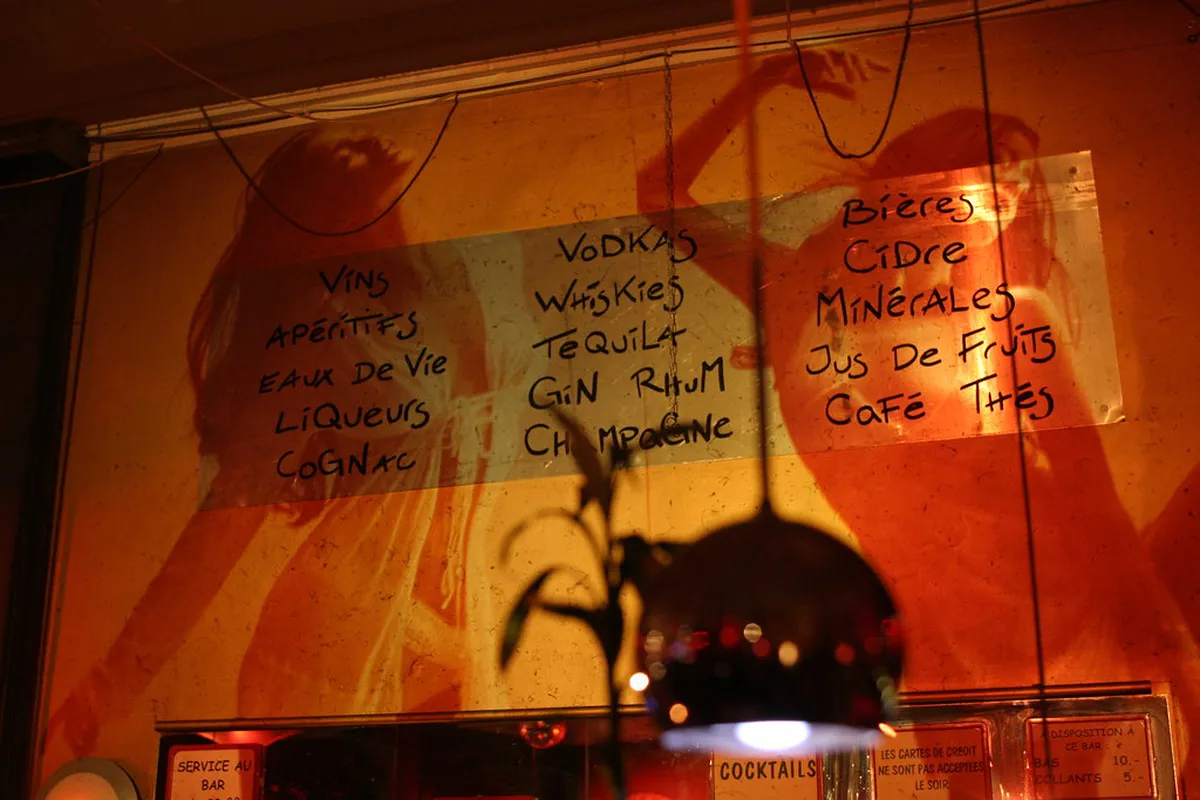 Vins
APéRiTiFS
EAUX De Vie
LiQueurs
CoGNAC
VoDKAS
WHisKies
TeQUiLA
GiN RHuM
CHAMPaGNe
Bières
CiDre
MiNérALes
Jus De FruiTs
CaFé THés
SERVICE AU
BAR
COCKTAILS
LES CARTES DE CREDIT
NE SONT PAS ACCEPTEES
LE SOIR
A DISPOSITION À
CE BAR :
BAS 10.-
COLLANTS 5.-